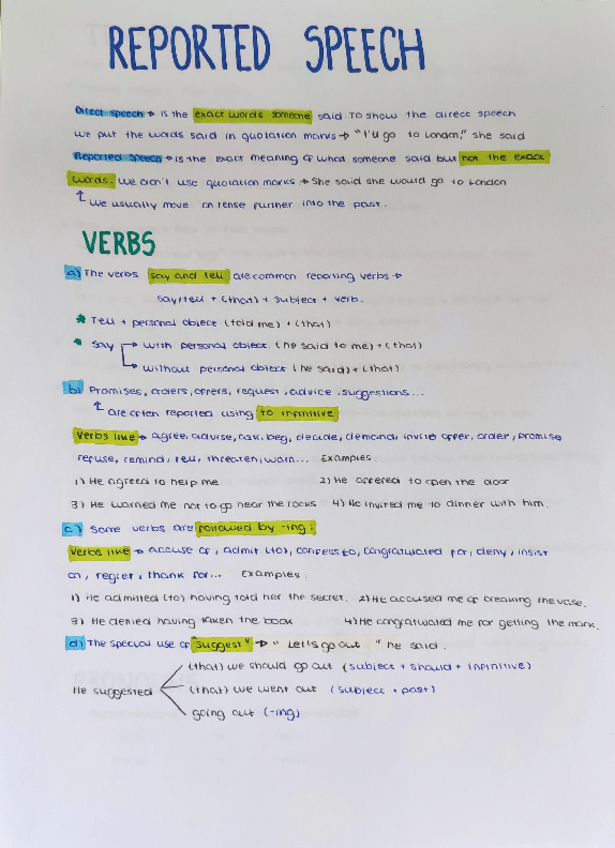 REPORTED SPEECH
Direct speech → is the exact words someone said. To show the direct speech
we put the words said in quotation marks → "I'll go to London," she said
Reported speech → is the exact meaning of what someone said but not the exact
words. We don't use quotation marks → She said she would go to London
↑ we usually move on tense further into the past.
VERBS
a) The verbs say and tell are common reporting verbs →
say/tell + (that) + subject + verb.
* Tell + personal object (told me) + (that)
* Say → with personal object. (he said to me) + (that)
→ without personal object (he said) + (that)
b) Promises, orders, offers, request, advice, suggestions...
↑ are often reported using to infinitive
Verbs like → agree, advise, ask, beg, decide, demand, invite offer, order, promise
refuse, remind, tell, threaten, warn... Examples:
1) He agreed to help me 2) He offered to open the door
3) He warned me not to go near the rocks 4) He invited me to dinner with him.
c) Some verbs are followed by -ing:
Verbs like → accuse of, admit (to), confess to, congratulated for, deny, insist
on, regret, thank for... Examples:
1) He admitted (to) having told her the secret. 2) He accused me of breaking the vase.
3) He denied having taken the book 4) He congratulated me for getting the mark.
d) The special use of "suggest" → "Let's go out" he said.
(that) we should go out (subject + should + infinitive)
He suggested (that) we went out (subject + past)
going out (-ing)